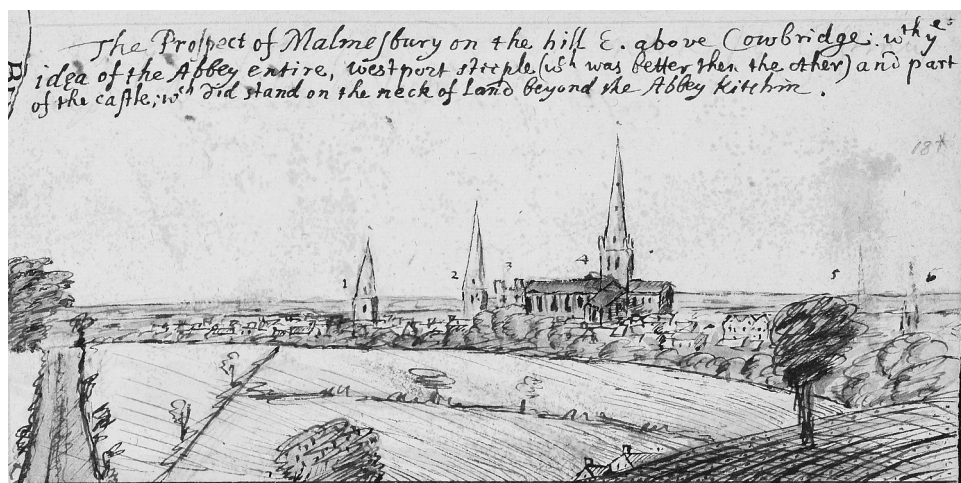 The Prospect of Malmesbury on the hill E. above Cowbridge: wth ye
idea of the Abbey entire, westport steeple (wch was better then the other) and part
of the castle; wch did stand on the neck of Land beyond the Abbey Kitchin.
1
2
3
4
5
6